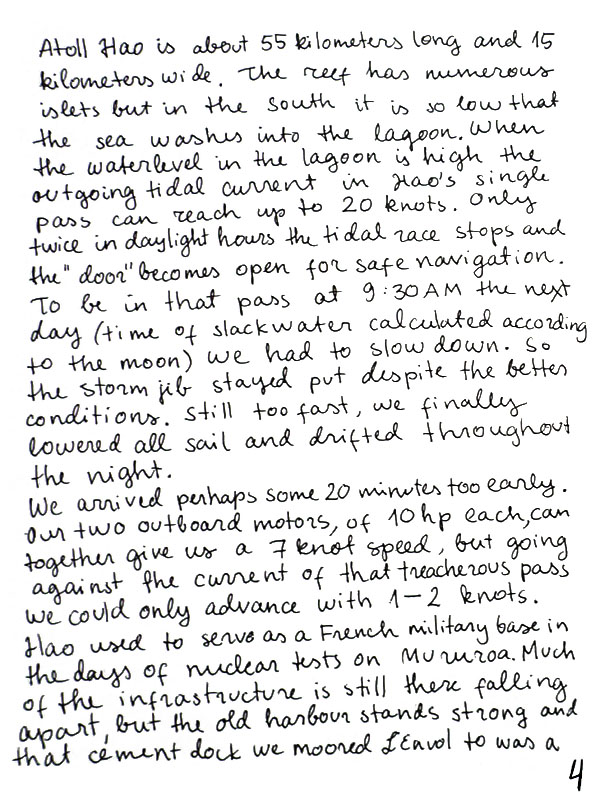 Atoll Hao is about 55 kilometers long and 15
kilometers wide. The reef has numerous
islets but in the south it is so low that
the sea washes into the lagoon. When
the waterlevel in the lagoon is high the
outgoing tidal current in Hao's single
pass can reach up to 20 knots. Only
twice in daylight hours the tidal race stops and
the "door" becomes open for safe navigation.
To be in that pass at 9:30 AM the next
day (time of slackwater calculated according
to the moon) we had to slow down. So
the storm jib stayed put despite the better
conditions. Still too fast, we finally
lowered all sail and drifted throughout
the night.
We arrived perhaps some 20 minutes too early.
Our two outboard motors, of 10 hp each, can
together give us a 7 knot speed, but going
against the current of that treacherous pass
we could only advance with 1-2 knots.
Hao used to serve as a French military base in
the days of nuclear tests on Mururoa. Much
of the infrastructure is still there falling
apart, but the old harbour stands strong and
that cement dock we moored L'Envol to was a
4